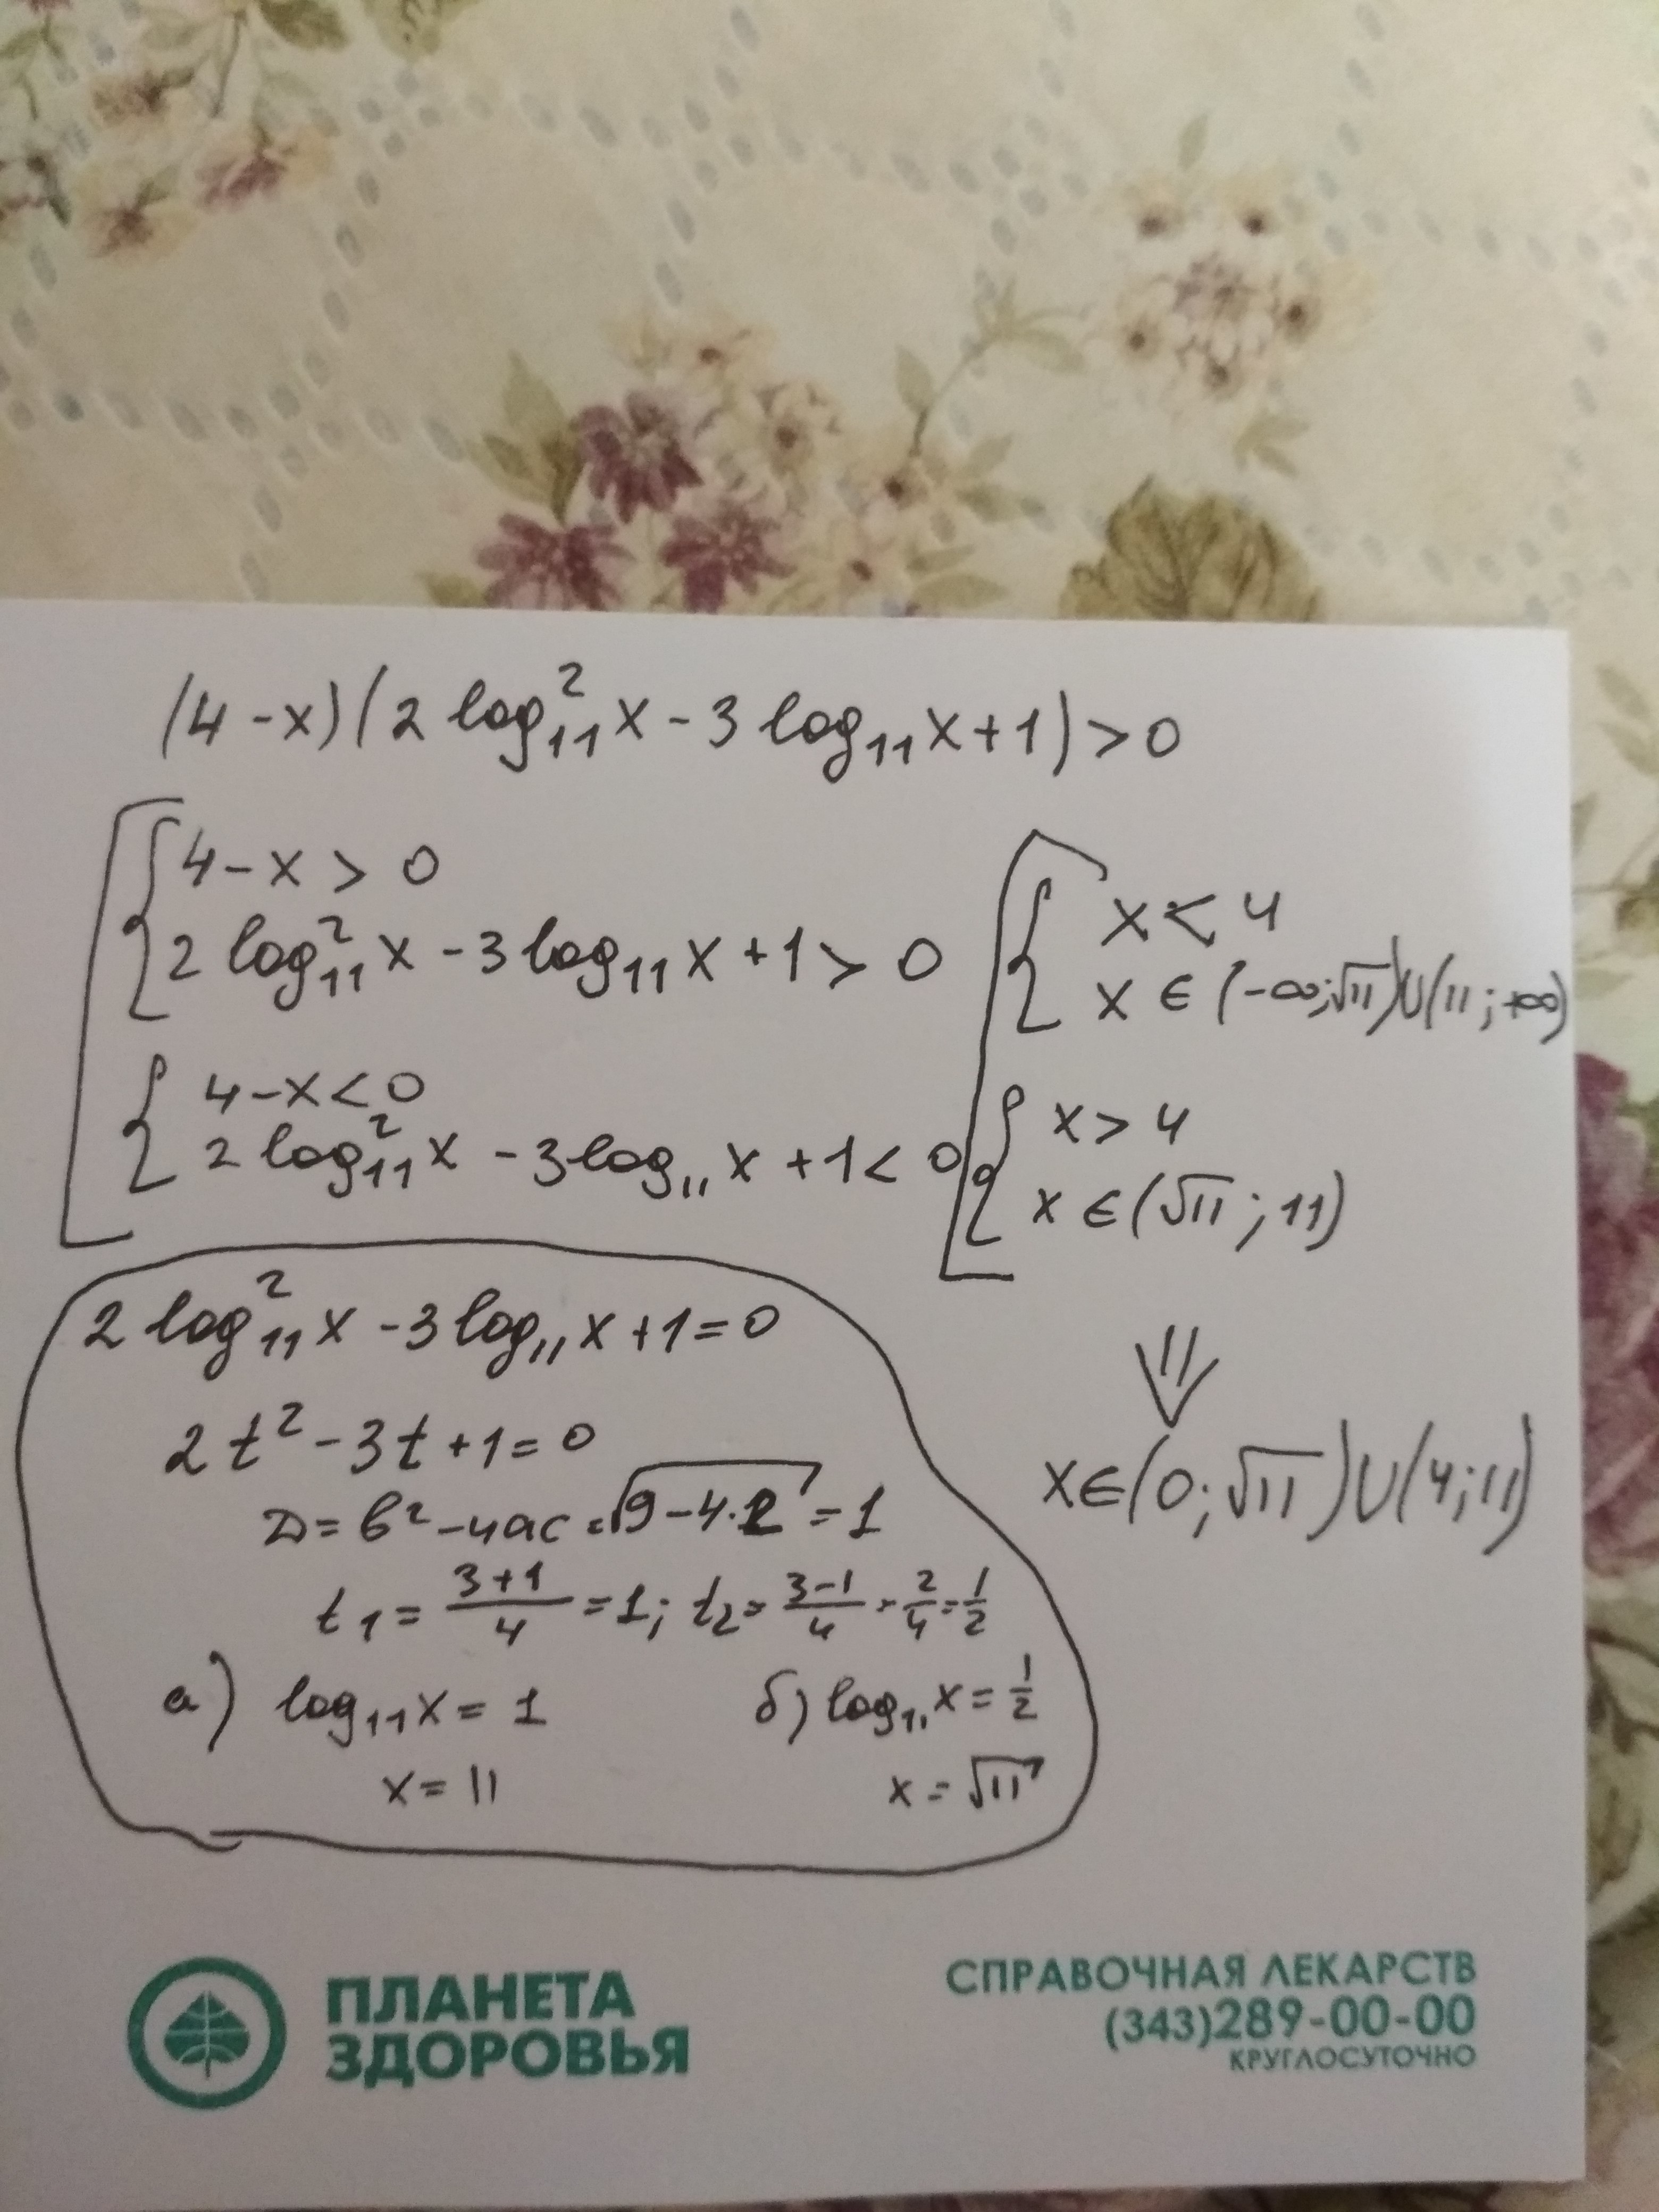 (4-x)(2 log²₁₁x - 3 log₁₁x + 1) > 0
4-x > 0
2 log²₁₁x - 3 log₁₁x + 1 > 0
4-x < 0
2 log²₁₁x - 3 log₁₁x + 1 < 0
x < 4
x ∈ (-∞; √11) ∪ (11; +∞)
x > 4
x ∈ (√11; 11)
⇓
x ∈ (0; √11) ∪ (4; 11)
2 log²₁₁x - 3 log₁₁x + 1 = 0
2t² - 3t + 1 = 0
D = b² - 4ac = √(9-4·2) = 1
t₁ = (3+1)/4 = 1; t₂ = (3-1)/4 = 2/4 = 1/2
а) log₁₁x = 1
x = 11
б) log₁₁x = 1/2
x = √11
ПЛАНЕТА
ЗДОРОВЬЯ
СПРАВОЧНАЯ ЛЕКАРСТВ
(343)289-00-00
КРУГЛОСУТОЧНО